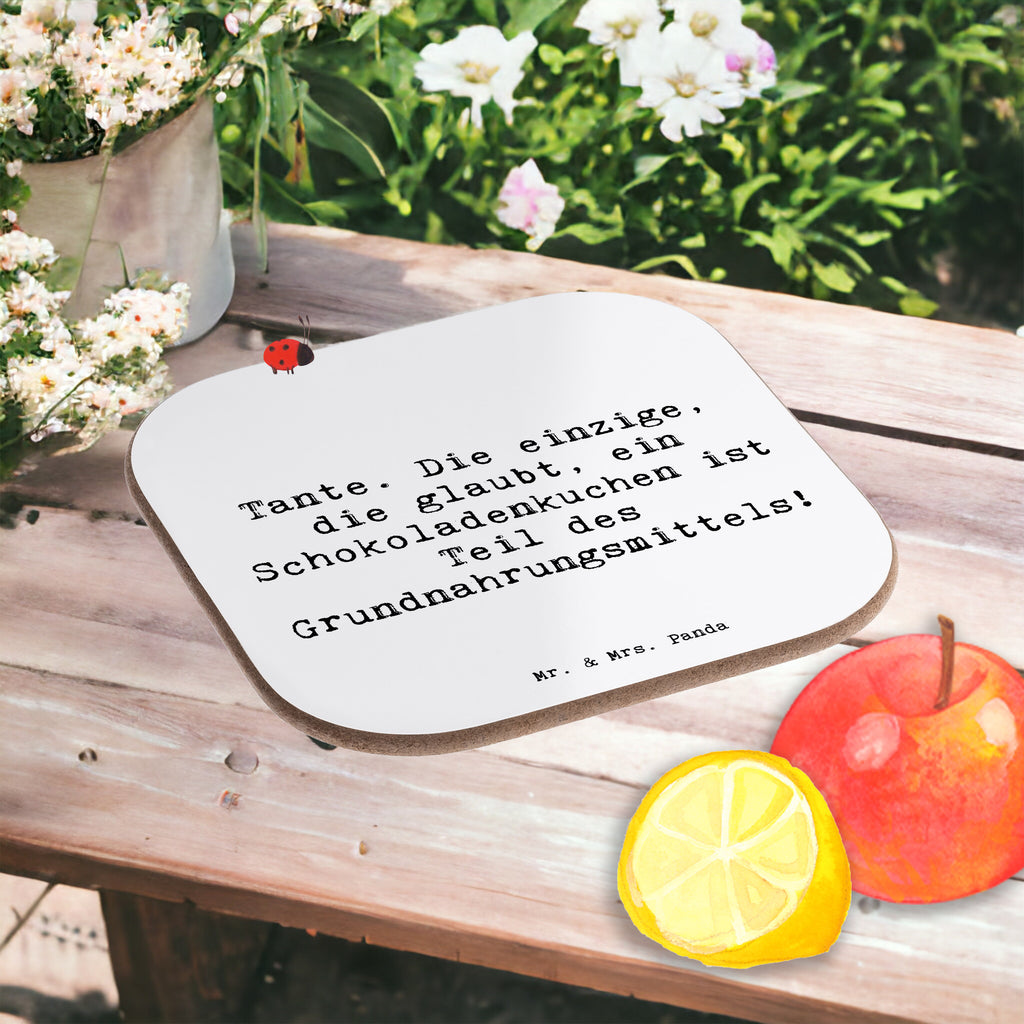 Tante. Die einzige,
die glaubt, ein
Schokoladenkuchen ist
Teil des
Grundnahrungsmittels!
Mr. & Mrs. Panda